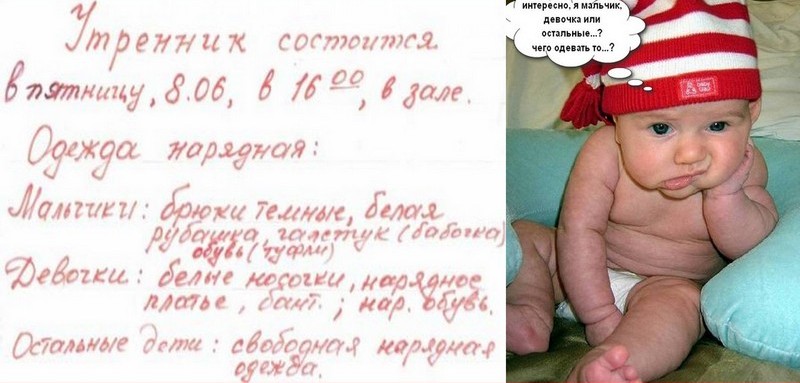 Утренник состоится
в пятницу, 8.06, в 16 00, в зале.
Одежда нарядная:
Мальчики: брюки темные, белая
рубашка, галстук (бабочка)
обувь (туфли)
Девочки: белые носочки, нарядное
платье, бант.; нар. обувь.
Остальные дети: свободная нарядная
одежда.
интересно, я мальчик,
девочка или
остальные...?
чего одевать то...?